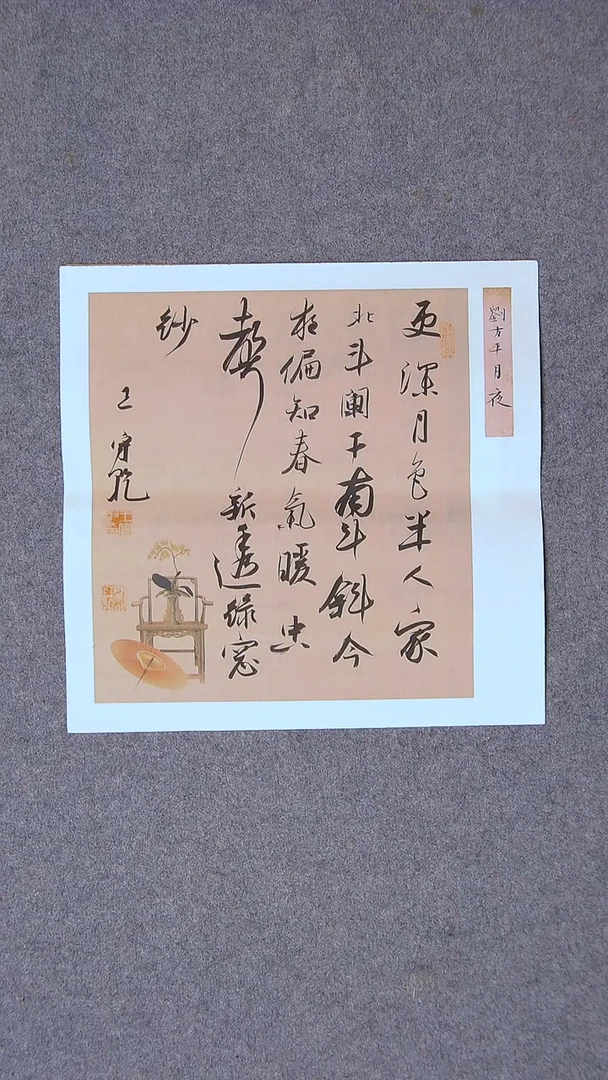 劉方平月夜
更深月色半人家
北斗闌干南斗斜今
夜偏知春氣暖虫
聲新透綠窗
紗
王守乾